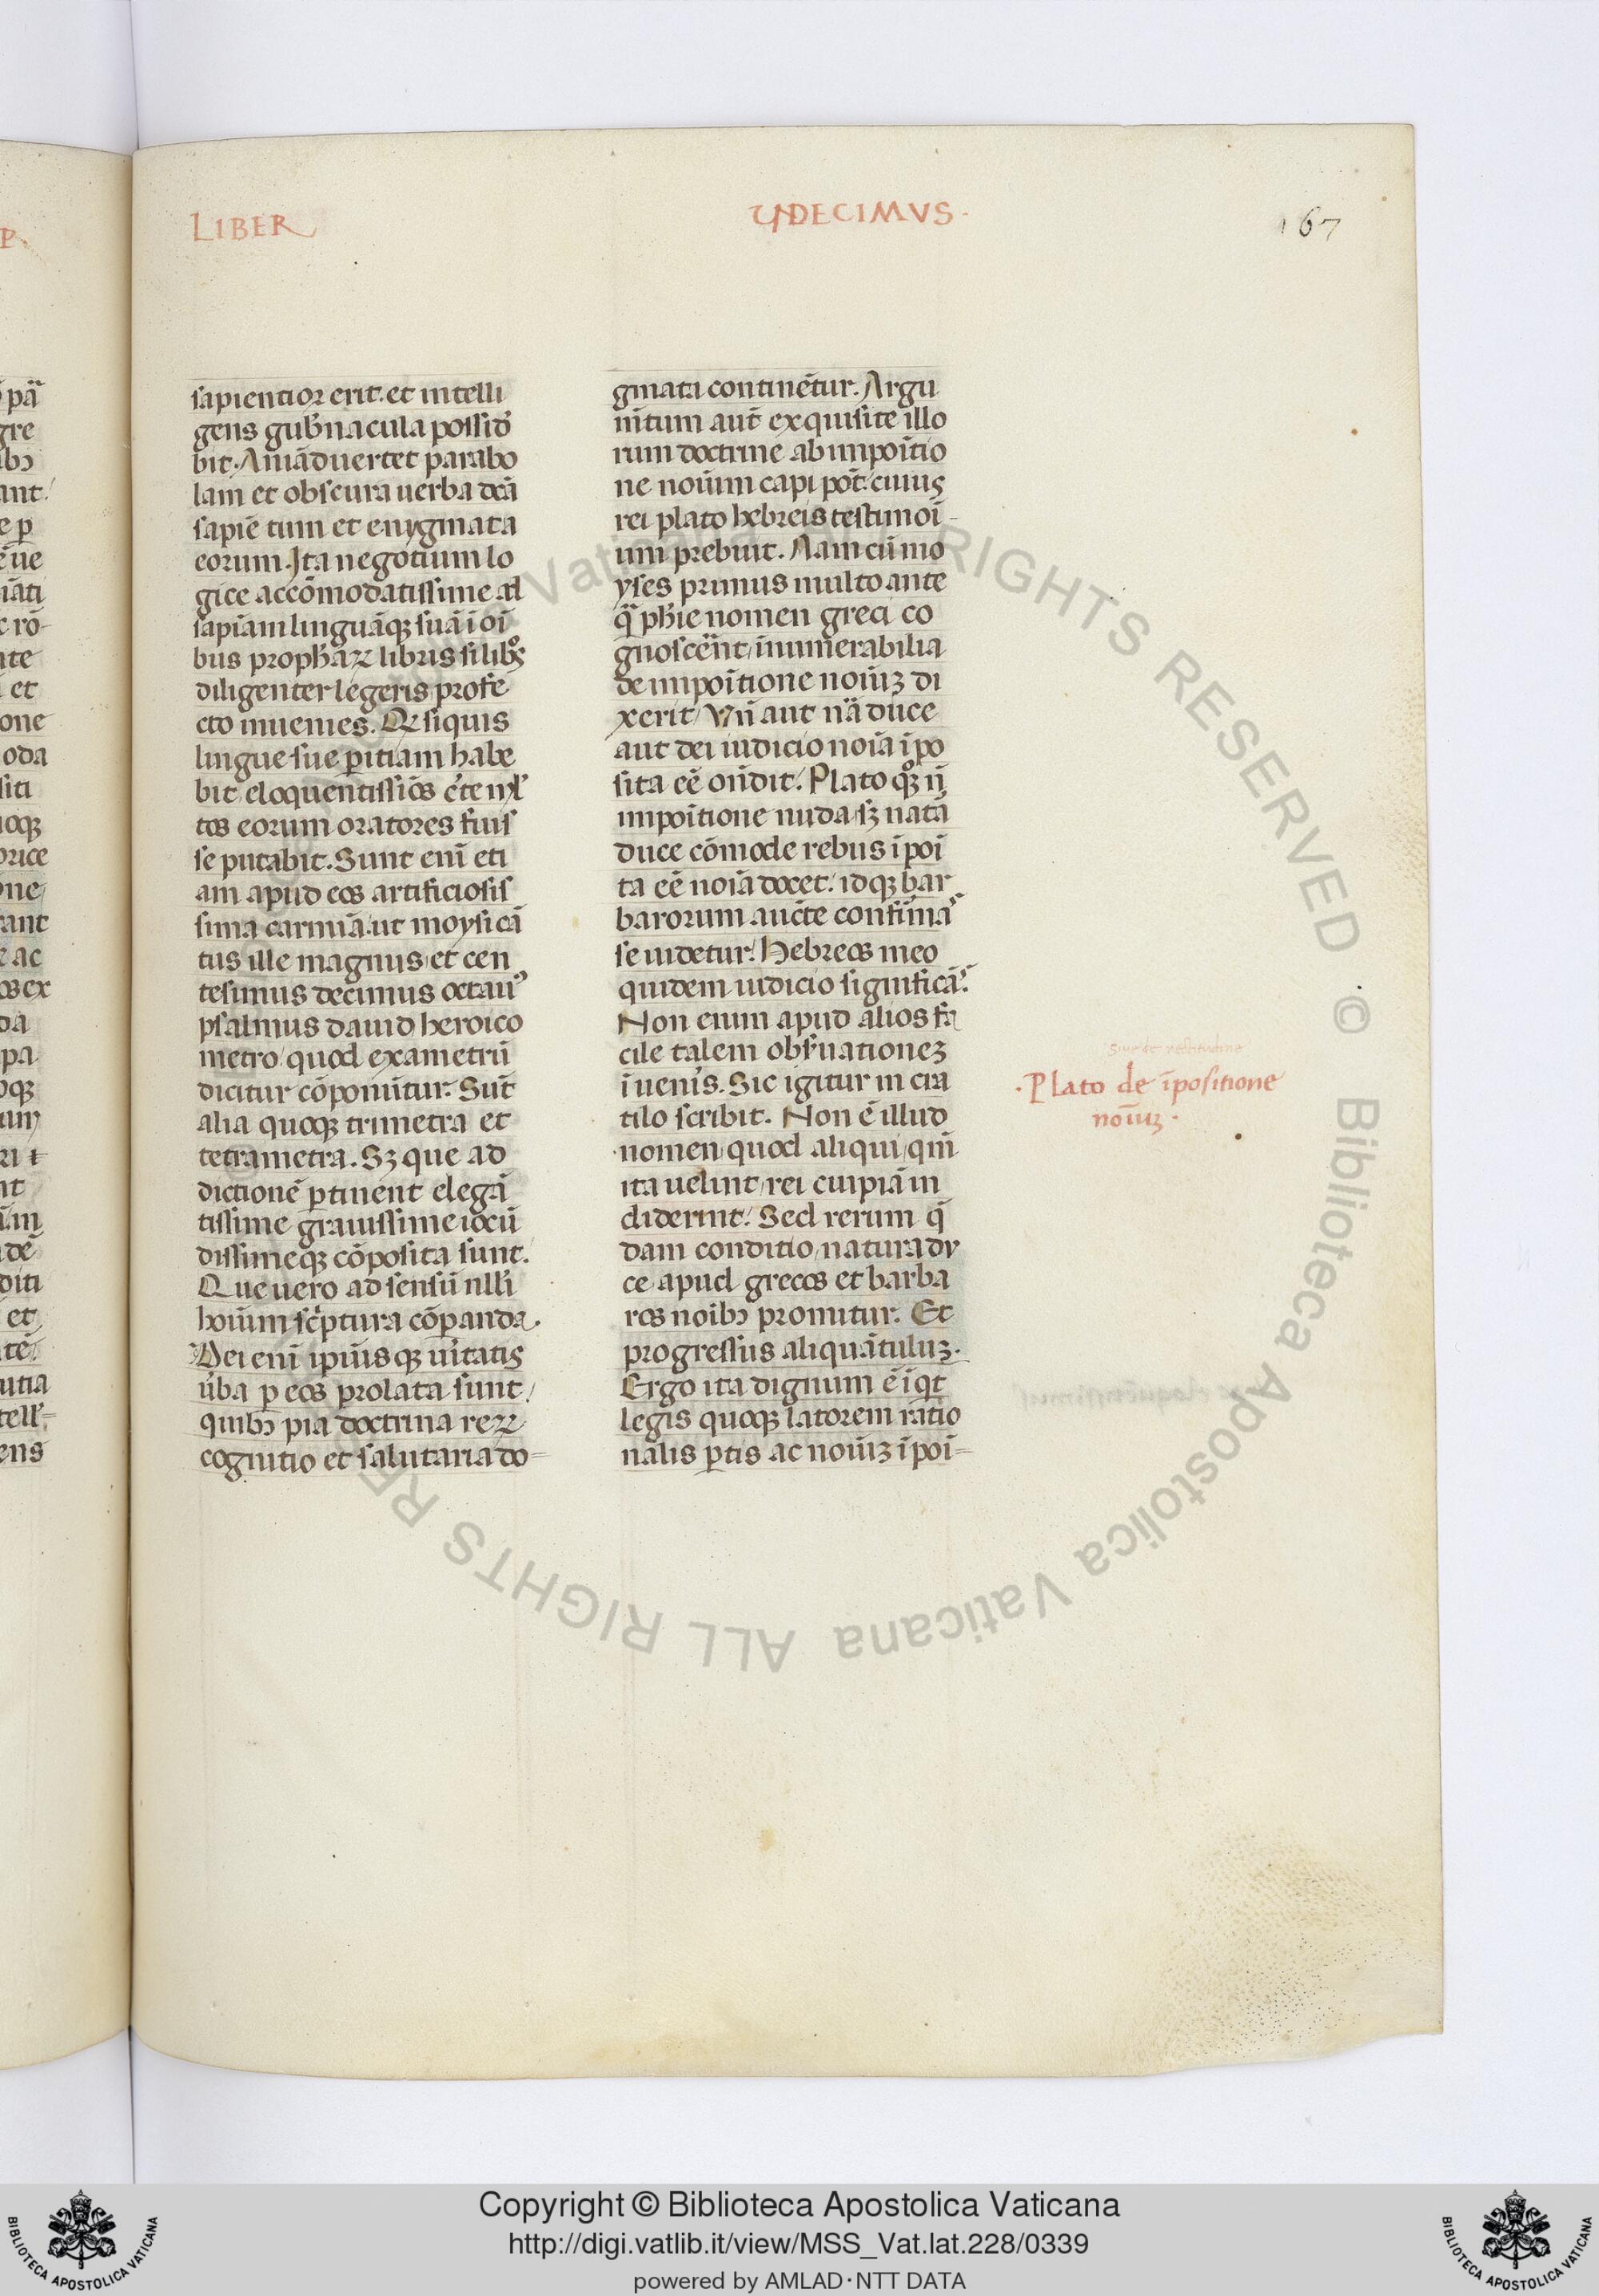 LIBER
VNDECIMVS.
167
sapientior erit et intelli
gens gub̄nacula possid̄
bit. Aniāduertet parabo
lam et obscura uerba dcā
sapiētum et enygmata
eorum. Ita negotium lo
gice accōmodatissime ad
sapiam linguāqꝫ suā ī oī
bus prophāꝝ libris si libꝰ
diligenter legeris profe
cto inuenies. Qꝫ siquis
lingue sue ꝑitiam habe
bit eloquentissiōs
tos eorum oratores fuis
se putabit. Sunt enī eti
am apud eos artificiosis
sima carmiā ut moysi cā
tus ille magnus et cen
tesimus decimus octauꝰ
psalmus dauid heroico
metro quod exametrū
dicitur cōponūtur. Sūt
alia quoqꝫ trimetra et
tetrametra. Sꝫ que ad
dictionē ꝑtinent elegā
tissime grauissime iocū
dissimeqꝫ cōposita sunt.
Que uero ad sensū nlli
hoīum sc̄ptura cōꝑanda.
Dei enī ipiusqꝫ ūitatis
ūba ꝑ eos prolata sunt
quibꝫ pia doctrina reꝝ
cognitio et salutaria do=
gmata continētur. Argu
m̄tum aut̄ exquisite illo
rum doctrine ab impoītio
ne noīum capi pōt. cuius
rei plato hebreis testimoī-
um prebuit. Nam cū mo
yses primus multo ante
qꝫ ph̄ie nomen greci co
gnoscent īnumerabilia
de impoītione noīuꝫ di
xerit
aut dei iudicio noīa īpo
sita eē on̄dit. Plato qꝫ n̄
impoītione nuda sꝫ natā
duce cōmode rebus īpoī
ta eē noīa docet. idqꝫ bar
barorum aucte confirma
se uidetur. Hebreos meo
quidem iudicio significās.
Non enim apud alios fa
cile talem obs̄uationeꝫ
īuenis. Sic igitur in cra
tilo scribit. Non ē illud
nomen quod aliqui qm̄
ita uelint rei cuipiā in
diderint. Sed rerum q̄
dam conditio natura du
ce apud grecos et barba
ros noībꝫ promitur. Et
progressus aliquātuluꝫ.
Ergo ita dignum ē īqt
legis quoqꝫ latorem ratio
nalis ꝑtis ac noīuꝫ īpoī=
siue de rectitudine
.Plato de īpositione
noīuꝫ.
Copyright © Biblioteca Apostolica Vaticana
http://digi.vatlib.it/view/MSS_Vat.lat.228/0339
powered by AMLAD·NTT DATA